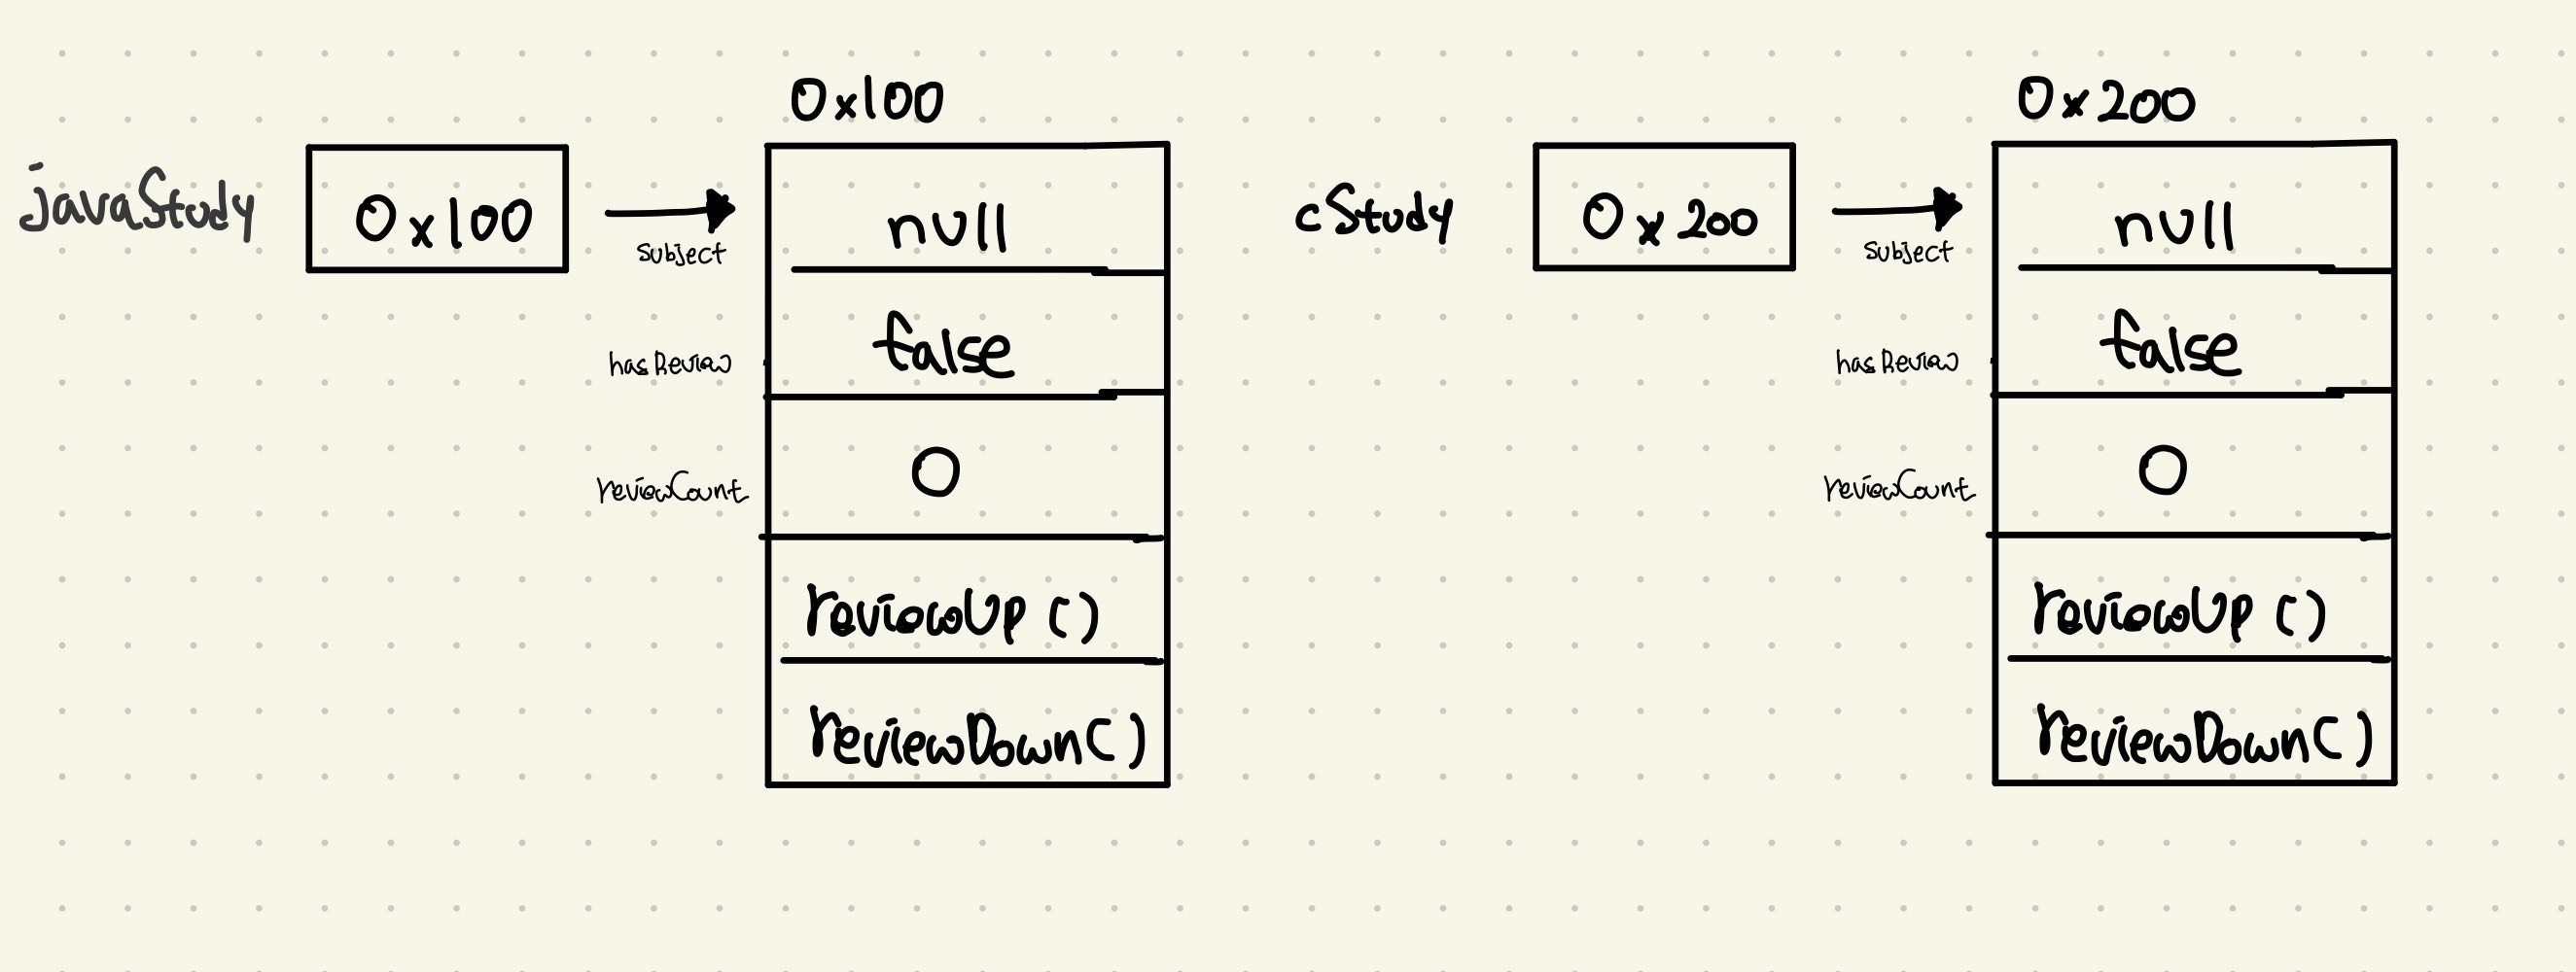 0x100
javaStudy
0x100
subject
null
hasReview
false
reviewCount
0
reviewUp ( )
reviewDown( )
0x200
cStudy
0x200
subject
null
hasReview
false
reviewCount
0
reviewUp ( )
reviewDown( )